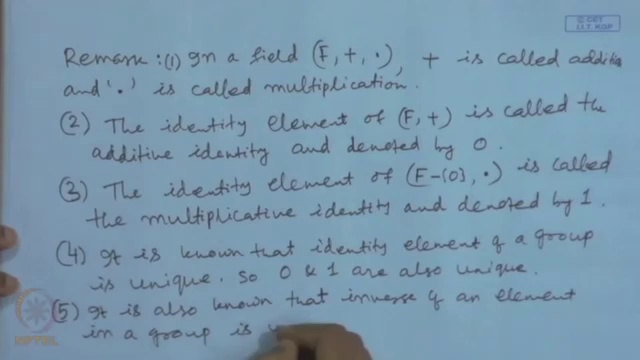 © CET
I.I.T. KGP
Remark: (1) In a field (F, +, ·), + is called additio
and '·' is called multiplication.
(2) The identity element of (F, +) is called the
additive identity and denoted by 0.
(3) The identity element of (F-{0}, ·) is called
the multiplicative identity and denoted by 1.
(4) It is known that identity element of a group
is unique. So 0 & 1 are also unique.
(5) It is also known that inverse of an element
in a group is u
NPTEL